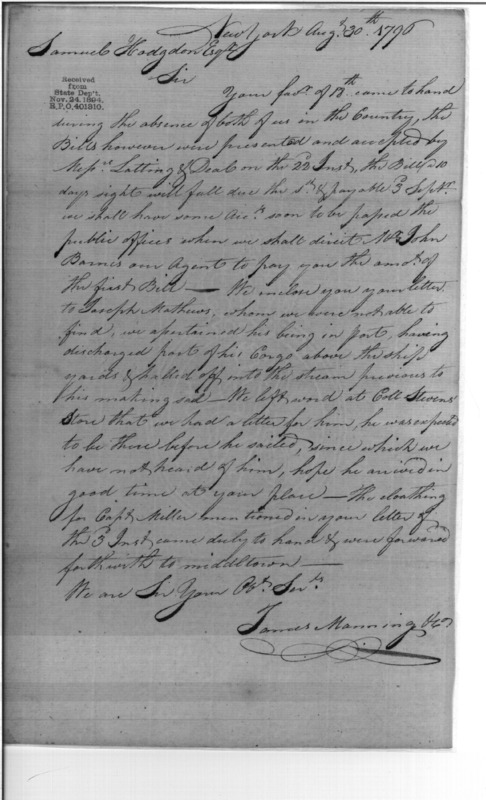 New York Aug.t 30th 1796
Samuel Hodgdon Esqr
Received
from
State Dep't.
Nov. 24. 1894.
R.P.O. 401310.
Sir
Your favr. of 13th came to hand
during the absence of both of us in the Country, the
Bills however were presented and accepted by
Messrs. Latting & Deal on the 22 Inst, the Bill @ 10
days sight will fall due the & payable 3 Septr.
we shall have some Accts. soon to be passed the
public offices when we shall direct Mr. John
Barnes our Agent to pay you the amot. of
the first Bill — We inclose you your letter
to Joseph Mathews, whom we were not able to
find, we ascertained his being in port, having
discharged part of his Cargo above the ship
yards & halled off into the stream previous to
his making sail — We left word at Coll. Stevens'
Store that we had a letter for him, he was expected
to be there before he sailed, since which we
have not heard of him, hope he arrived in
good time at your place — the cloathing
for Capt. Miller mentioned in your letter of
the 3 Inst, came duly to hand & were forwarded
forthwith to middletown —
We are Sir Your Obt. Servts.
James Manning & Co